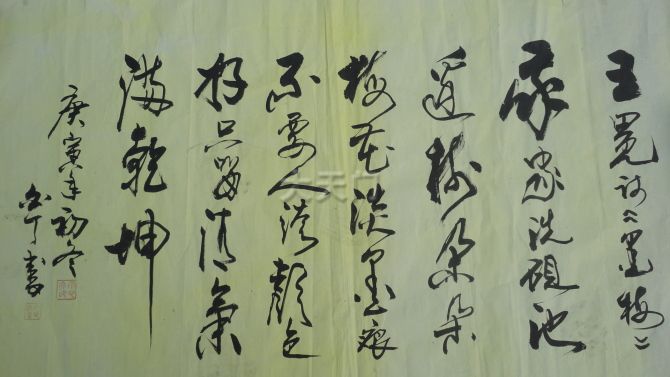 王冕诗《墨梅》
我家洗硯池
邊樹朵朵
梅花淡墨痕
不要人誇顏色
好只留清氣
滿乾坤
庚寅年初冬